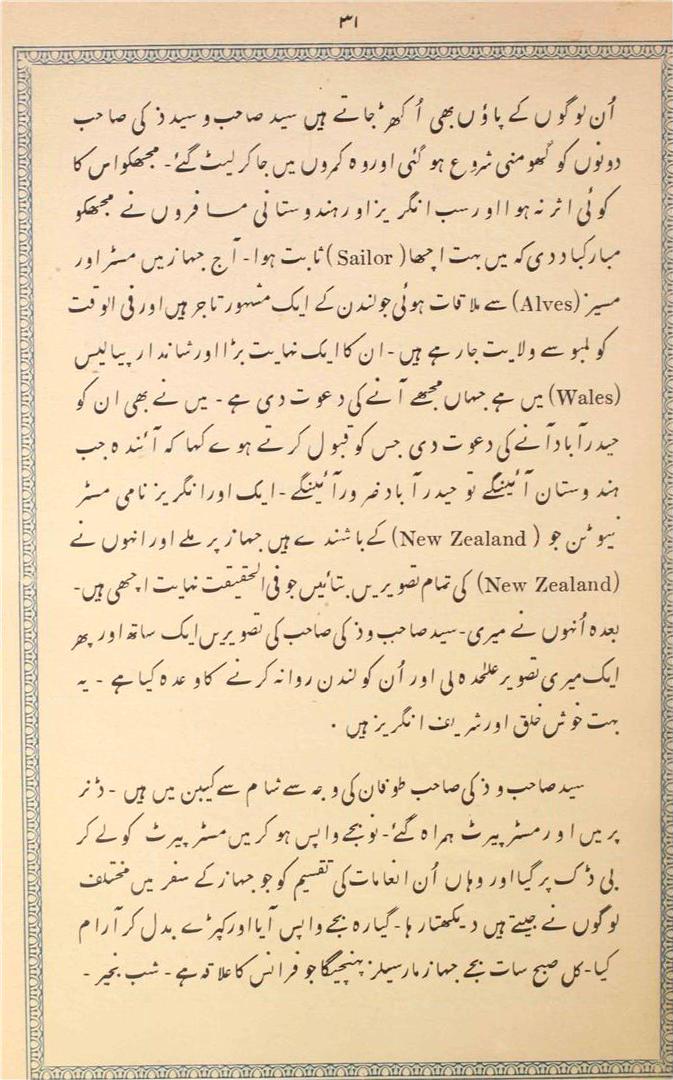 ۳۱
اُن لوگوں کے پاؤں بھی اُکھڑ جاتے ہیں سید صاحب و سید ذکی صاحب
دونوں کو گھومنی شروع ہو گئی اور وہ کمروں میں جا کر لیٹ گئے۔ مجھکو اس کا
کوئی اثر نہ ہوا اور سب انگریز اور ہندوستانی مسافروں نے مجھکو
مبارکباد دی کہ میں بہت اچھا (Sailor) ثابت ہوا۔ آج جہاز میں مسٹر اور
مسیز (Alves) سے ملاقات ہوئی جو لندن کے ایک مشہور تاجر ہیں اور فی الوقت
کولمبو سے ولایت جا رہے ہیں ۔ ان کا ایک نہایت بڑا اور شاندار پیالیس
(Wales) میں ہے جہاں مجھے آنے کی دعوت دی ہے ۔ میں نے بھی ان کو
حیدرآباد آنے کی دعوت دی جس کو قبول کرتے ہوے کہا کہ آئندہ جب
ہندوستان آئینگے تو حیدرآباد ضرور آئینگے ۔ ایک اور انگریز نامی مسٹر
نیوٹن جو (New Zealand) کے باشندے ہیں جہاز پر ملے اور انہوں نے
(New Zealand) کی تمام تصویریں بتائیں جو فی الحقیقت نہایت اچھی ہیں۔
بعدہ اُنہوں نے میری۔ سید صاحب و ذکی صاحب کی تصویریں ایک ساتھ اور پھر
ایک میری تصویر علٰحدہ لی اور اُن کو لندن روانہ کرنے کا وعدہ کیا ہے ۔ یہ
بہت خوش خلق اور شریف انگریز ہیں ۔
سید صاحب و ذکی صاحب طوفان کی وجہ سے شام سے کیبن میں ہیں ۔ ڈنر
پر میں اور مسٹر پیرٹ ہمراہ گئے۔ نو بجے واپس ہو کر میں مسٹر پیرٹ کو لے کر
بی ڈک پر گیا اور وہاں اُن انعامات کی تقسیم کو جو جہاز کے سفر میں مختلف
لوگوں نے جیتے ہیں دیکھتا رہا۔ گیارہ بجے واپس آیا اور کپڑے بدل کر آرام
کیا۔ کل صبح سات بجے جہاز مارسیلز پہنچیگا جو فرانس کا علاقہ ہے ۔ شب بخیر ۔